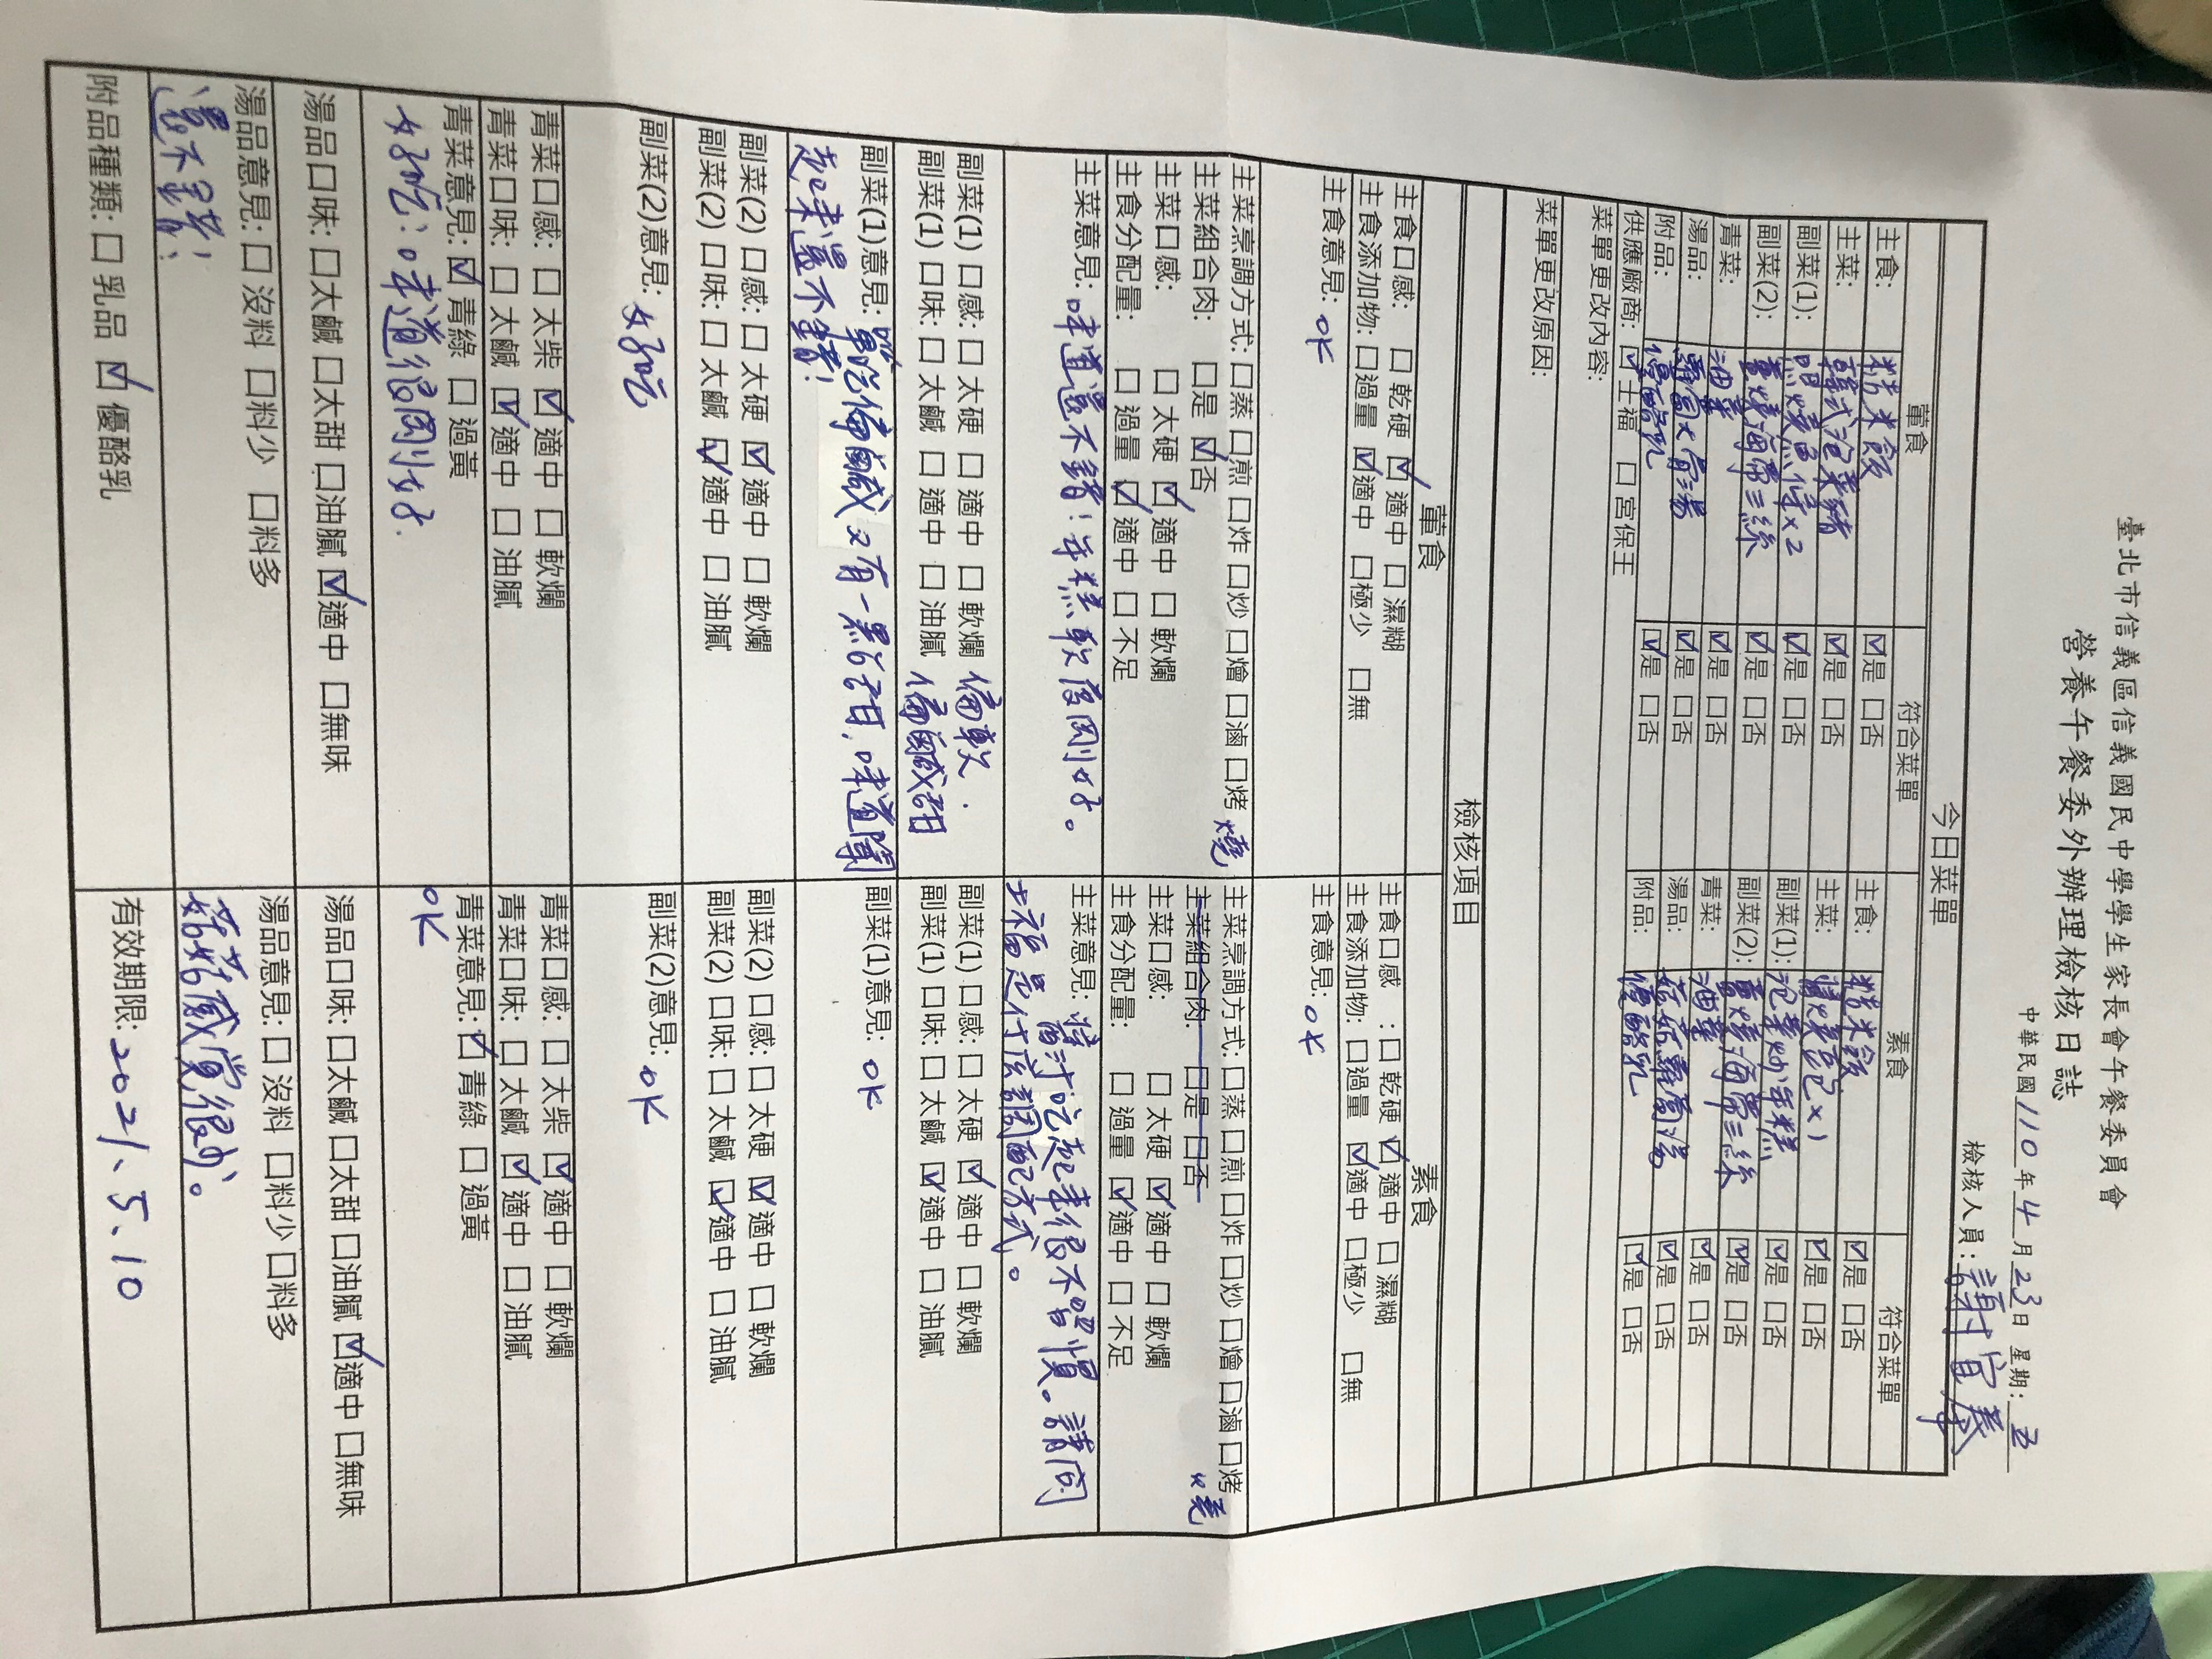 臺北市信義區信義國民中學學生家長會午餐委員會
營養午餐委外辦理檢核日誌
中華民國110年4月23日 星期:五
檢核人員:謝宜蓁
今日菜單
葷食 符合菜單 素食 符合菜單
主食: 糙米飯 ☑是 口否 主食: 糙米飯 ☑是 口否
主菜: 韓式泡菜豬 ☑是 口否 主菜: 醬燒豆包x1 ☑是 口否
副菜(1): 照燒魚條x2 ☑是 口否 副菜(1): 泡菜炒年糕 ☑是 口否
副菜(2): 薑燒海帶三絲 ☑是 口否 副菜(2): 薑燒海帶三絲 ☑是 口否
青菜: 油菜 ☑是 口否 青菜: 油菜 ☑是 口否
湯品: 蘿蔔大骨湯 ☑是 口否 湯品: 菇菇蘿蔔湯 ☑是 口否
附品: 優酪乳 ☑是 口否 附品: 優酪乳 ☑是 口否
供應廠商: ☑士福 口宮保王
菜單更改內容:
菜單更改原因:
檢核項目
葷食 素食
主食口感: 口 乾硬 ☑ 適中 口 濕糊
主食添加物: 口過量 ☑適中 口極少 口無
主食意見: OK
主食口感 : 口 乾硬 ☑ 適中 口 濕糊
主食添加物: 口過量 ☑適中 口極少 口無
主食意見: OK
主菜烹調方式: 口蒸 口煎 口炸 口炒 口燴 口滷 口烤 燒
主菜組合肉: 口是 ☑否
主菜口感: 口 太硬 ☑ 適中 口 軟爛
主食分配量: 口 過量 ☑ 適中 口 不足
主菜烹調方式: 口蒸 口煎 口炸 口炒 口燴 口滷 口烤 燒
主菜組合肉: 口是 口否
主菜口感: 口 太硬 ☑ 適中 口 軟爛
主食分配量: 口 過量 ☑ 適中 口 不足
主菜意見: 味道還不錯!年糕軟度剛好。
主菜意見: 醬汁吃起來很不習慣。請問
士福是什麼調配方式。
副菜(1) 口感: 口 太硬 口 適中 口 軟爛 偏軟.
副菜(1) 口味: 口 太鹹 口 適中 口 油膩 偏鹹甜
副菜(1) 口感: 口 太硬 ☑ 適中 口 軟爛
副菜(1) 口味: 口 太鹹 ☑ 適中 口 油膩
副菜(1)意見: 單吃偏鹹又有一點台甜,味道聞
起來還不錯!
副菜(1)意見: OK
副菜(2) 口感: 口 太硬 ☑ 適中 口 軟爛
副菜(2) 口味: 口 太鹹 ☑適中 口 油膩
副菜(2) 口感: 口 太硬 ☑ 適中 口 軟爛
副菜(2) 口味: 口 太鹹 ☑適中 口 油膩
副菜(2)意見: 好吃
副菜(2)意見: OK
青菜口感: 口 太柴 ☑ 適中 口 軟爛
青菜口味: 口 太鹹 ☑ 適中 口 油膩
青菜口感: 口 太柴 ☑ 適中 口 軟爛
青菜口味: 口 太鹹 ☑ 適中 口 油膩
青菜意見: ☑ 青綠 口 過黃
好吃!味道很剛好.
青菜意見: ☑ 青綠 口 過黃
OK
湯品口味: 口太鹹 口太甜 口油膩 ☑適中 口無味
湯品口味: 口太鹹 口太甜 口油膩 ☑適中 口無味
湯品意見: 口 沒料 口料少 口料多
還不錯!
湯品意見: 口 沒料 口料少 口料多
菇菇感覺很少。
附品種類: 口 乳品 ☑ 優酪乳
有效期限: 2021、5、10